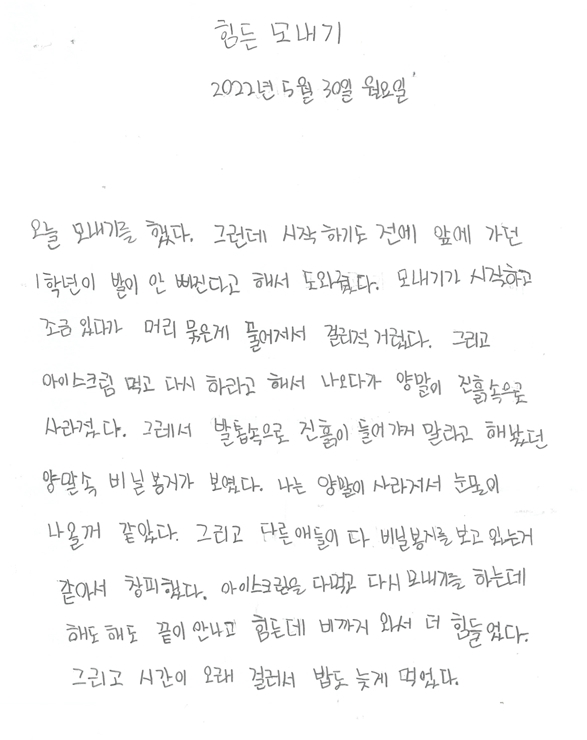 힘든 모내기
2022년 5월 30일 월요일
오늘 모내기를 했다. 그런데 시작 하기도 전에 앞에 가던
1학년이 발이 안 빠진다고 해서 도와줬다. 모내기가 시작하고
조금 있다가 머리 묶은게 풀어져서 걸리적 거렸다. 그리고
아이스크림 먹고 다시 하라고 해서 나오다가 양말이 진흙속으로
사라졌다. 그레서 발톱속으로 진흙이 들어가지 말라고 해놨던
양말속 비닐봉지가 보였다. 나는 양말이 사라져서 눈물이
나올꺼 같았다. 그리고 다른애들이 다 비닐봉지를 보고 있는거
같아서 창피했다. 아이스크림을 다먹고 다시 모내기를 하는데
해도 해도 끝이 안나고 힘든데 비까지 와서 더 힘들었다.
그리고 시간이 오래 걸려서 밥도 늦게 먹었다.